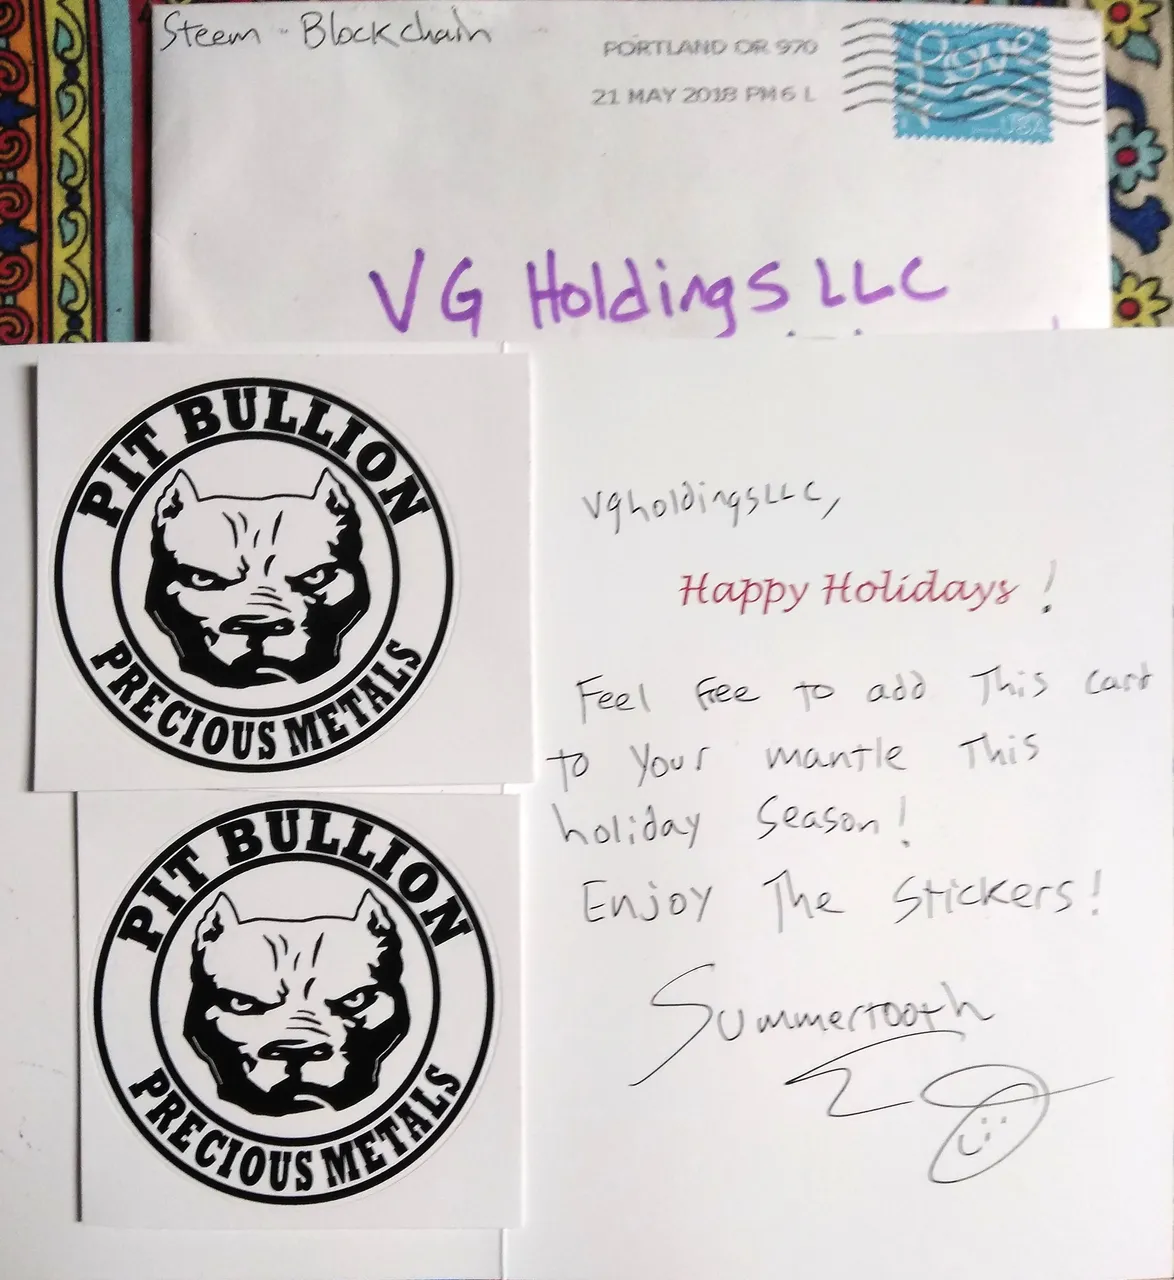 Steem - Blockchain
PORTLAND OR 970
21 MAY 2018 PM 6 L
USA
VG Holdings LLC
PIT BULLION
PRECIOUS METALS
PIT BULLION
PRECIOUS METALS
vgholdingsLLC,
Happy Holidays !
Feel free to add This card
to your mantle This
holiday season!
Enjoy The Stickers!
Summertooth